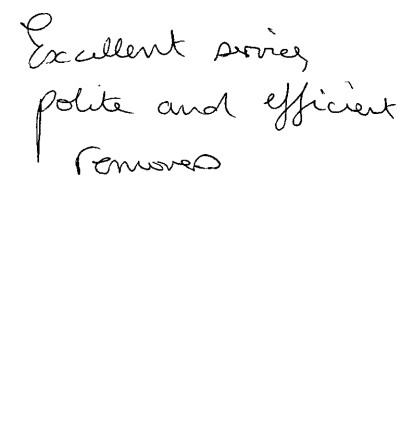 Excellent service,
polite and efficient
removers